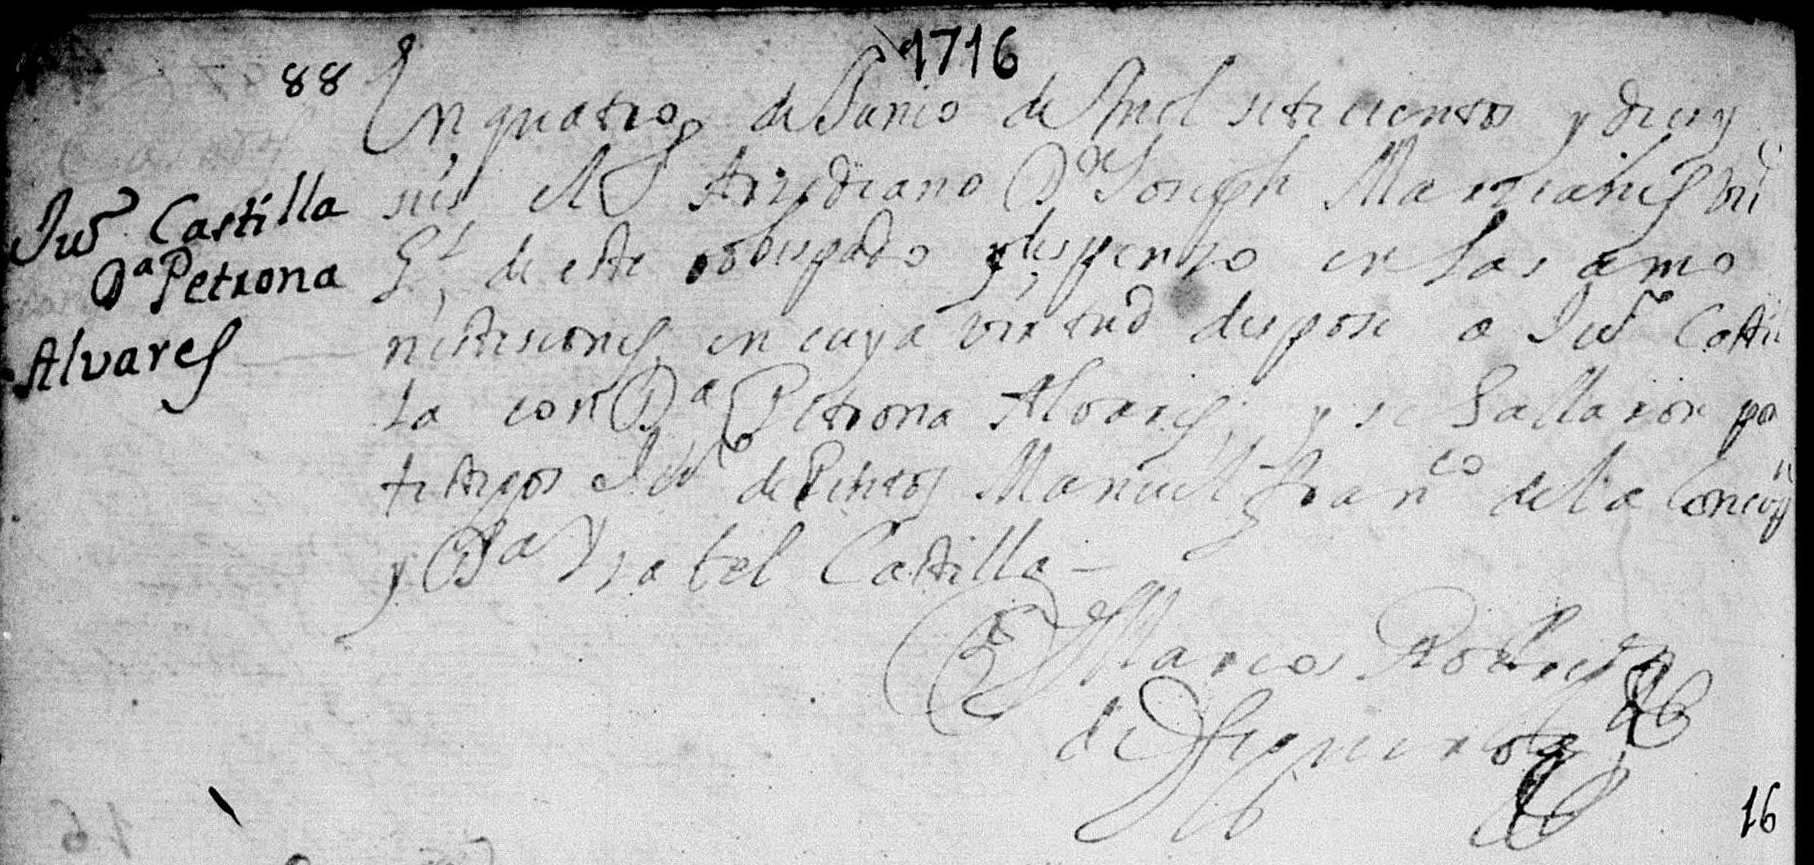 1716
88
Juº Castilla
Dª Petrona
Alvares
En quatro de Junio de mil setecientos y diesy
seis el S Arzediano Dn Joseph Marcianes
Gl de este obispado y dispenso en las amo
nestasiones en cuya virtud despose a Juº Casti
lla con Dª Petrona Alvares, y se hallaron por
testigos Juº de Pintos Manuel Franco de la Concon
y Dª Ysabel Castilla
Marcos Rodrigz
de Figueroa
16